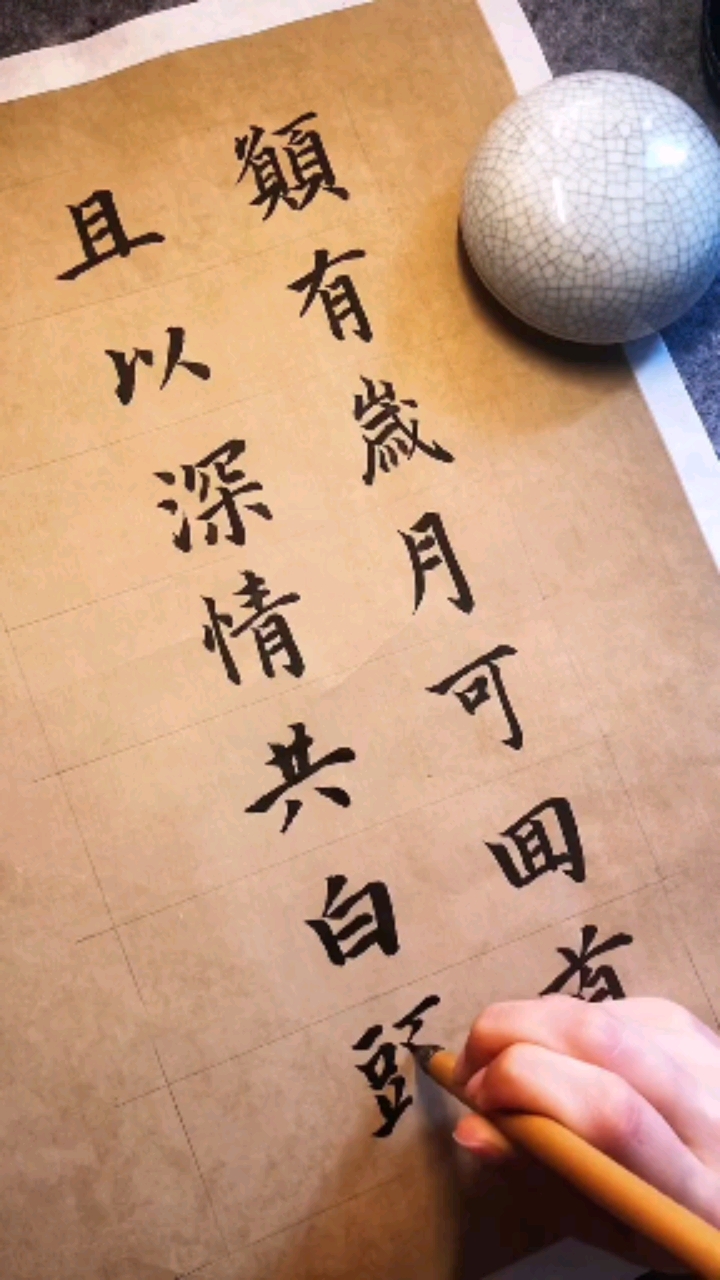 願有歲月可囬首
且以深情共白頭